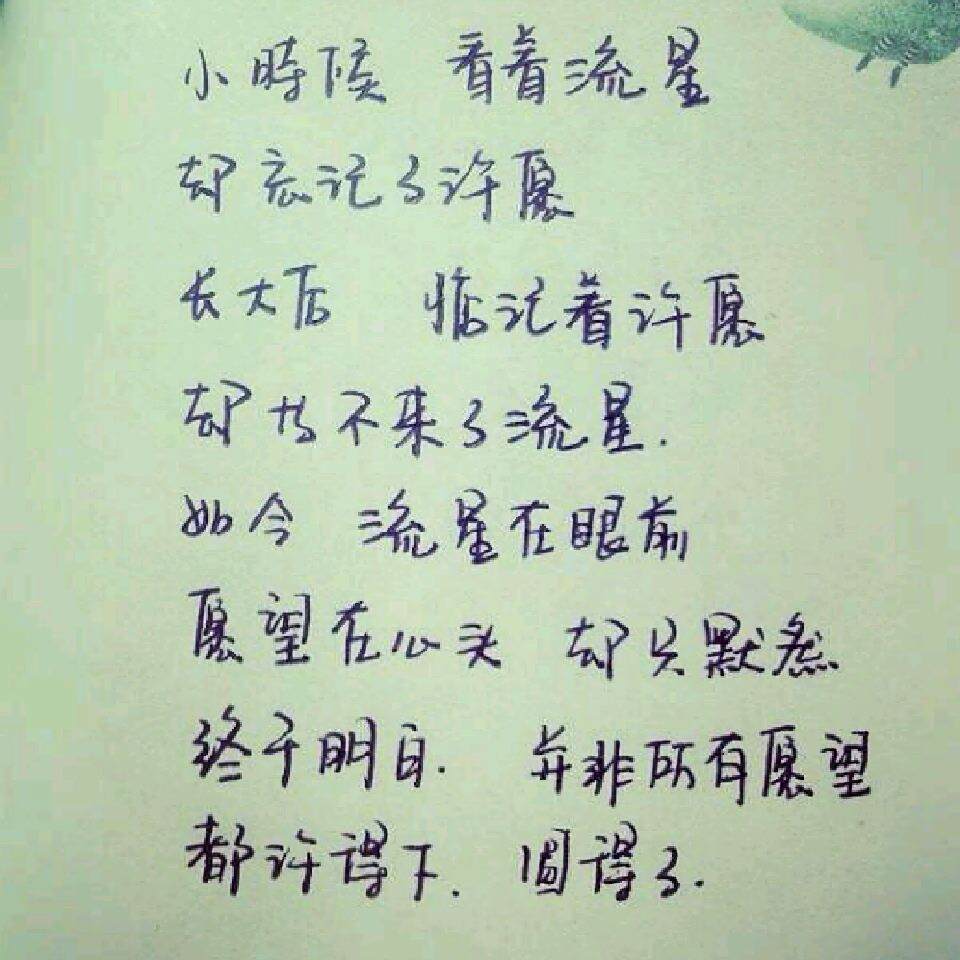 小時候 看着流星
却忘记了许愿
长大后 惦记着许愿
却找不来了流星.
如今 流星在眼前
愿望在心头 却只默然
终于明白. 并非所有愿望
都许得下. 圆得了.